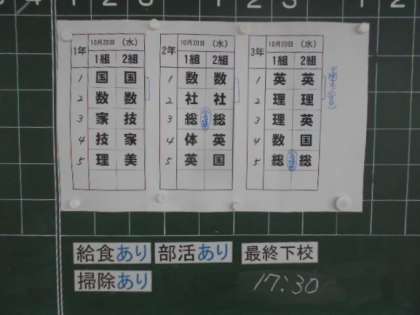 1年 10月20日 (水)
1組 2組
1 国 国
2 数 数
3 家 技
4 技 家
5 理 美
2年 10月20日 (水)
1組 2組
1 数 数
2 社 社
3 総 総
4 体 英
5 英 国
3年 10月20日 (水)
1組 2組
1 英 英
2 理 理
3 理 英
4 数 国
5 総 総
給食あり 部活あり 最終下校
掃除あり 17:30